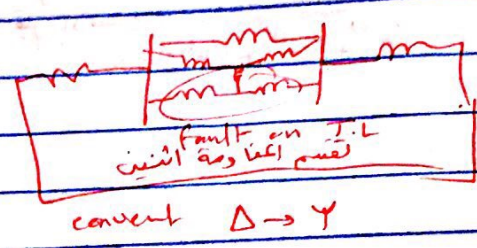 fault on T.L
نقسم المقاومة اثنين
convert Δ → Y